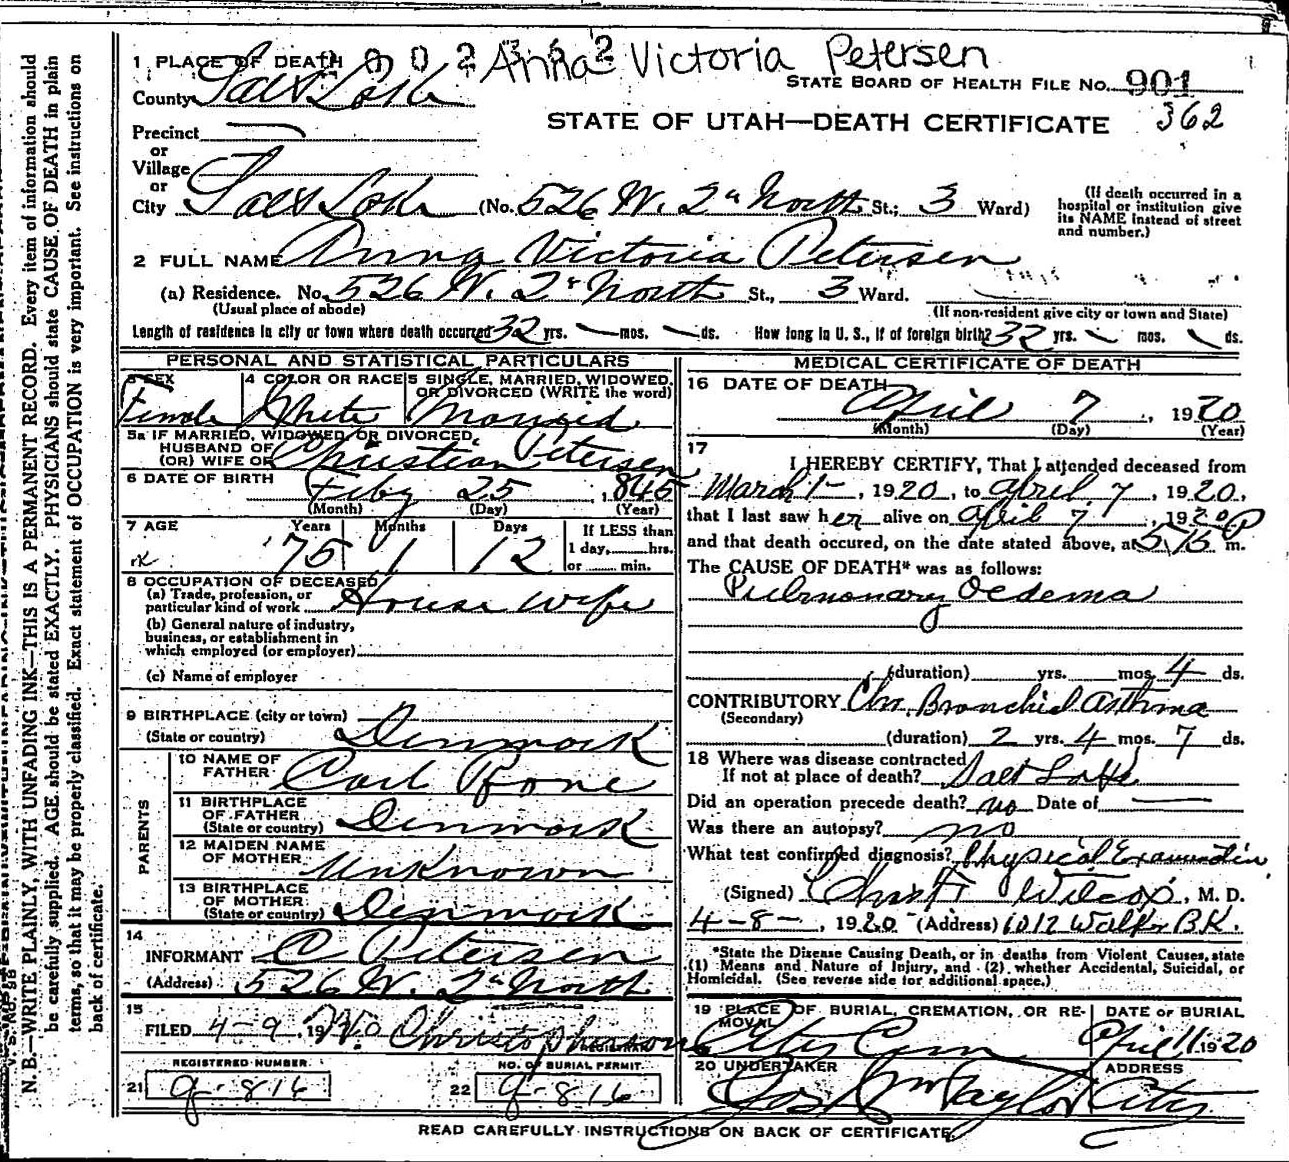 Anna Victoria Petersen
1 PLACE OF DEATH
STATE BOARD OF HEALTH FILE No. 901
County Salt Lake
STATE OF UTAH—DEATH CERTIFICATE 362
Precinct
or
Village
or
City Salt Lake (No. 526 W. 2nd North St.; 3 Ward)
(If death occurred in a hospital or institution give its NAME instead of street and number.)
2 FULL NAME Anna Victoria Petersen
(a) Residence. No. 526 W. 2nd North St., 3 Ward.
(Usual place of abode) (If non-resident give city or town and State)
Length of residence in city or town where death occurred 32 yrs. mos. ds. How long in U. S., if of foreign birth? 32 yrs. mos. ds.
PERSONAL AND STATISTICAL PARTICULARS
3 SEX 4 COLOR OR RACE 5 SINGLE, MARRIED, WIDOWED,
OR DIVORCED (WRITE the word)
Female White Married
5a IF MARRIED, WIDOWED, OR DIVORCED,
HUSBAND OF
(OR) WIFE OF Christian Petersen
6 DATE OF BIRTH Feby 25, 1845
(Month) (Day) (Year)
7 AGE Years Months Days If LESS than
75 1 12 1 day,......hrs.
or ...... min.
8 OCCUPATION OF DECEASED
(a) Trade, profession, or
particular kind of work House wife
(b) General nature of industry,
business, or establishment in
which employed (or employer)
(c) Name of employer
9 BIRTHPLACE (city or town)
(State or country) Denmark
PARENTS
10 NAME OF
FATHER Carl
11 BIRTHPLACE
OF FATHER
(State or country) Denmark
12 MAIDEN NAME
OF MOTHER Unknown
13 BIRTHPLACE
OF MOTHER
(State or country) Denmark
14
INFORMANT C Petersen
(Address) 526 W. 2nd North
15
FILED 4-9 19 Christopherson
REGISTRAR
REGISTERED NUMBER NO. OF BURIAL PERMIT
21 G-816 22 G-816
MEDICAL CERTIFICATE OF DEATH
16 DATE OF DEATH
April 7, 1920
(Month) (Day) (Year)
17
I HEREBY CERTIFY, That I attended deceased from
March 1-, 1920, to April 7, 1920,
that I last saw her alive on April 7, 1920
and that death occured, on the date stated above, at 5:15 P m.
The CAUSE OF DEATH* was as follows:
Pulmonary Oedema
(duration) yrs. mos. 4 ds.
CONTRIBUTORY Chr. Bronchial Asthma
(Secondary)
(duration) 2 yrs. 4 mos. 7 ds.
18 Where was disease contracted
If not at place of death? Salt Lake
Did an operation precede death? no Date of
Was there an autopsy? no
What test confirmed diagnosis? Physical Examination
(Signed) Wilcox, M. D.
4-8-, 1920 (Address) 1012 Walker BK.
*State the Disease Causing Death, or in deaths from Violent Causes, state
(1) Means and Nature of Injury, and (2) whether Accidental, Suicidal, or
Homicidal. (See reverse side for additional space.)
19 PLACE OF BURIAL, CREMATION, OR RE-
MOVAL
DATE OF BURIAL
City Cem April 11 1920
20 UNDERTAKER ADDRESS
Jos Wm Taylor City
READ CAREFULLY INSTRUCTIONS ON BACK OF CERTIFICATE.
N. B.—WRITE PLAINLY, WITH UNFADING INK—THIS IS A PERMANENT RECORD. Every item of information should
be carefully supplied. AGE should be stated EXACTLY. PHYSICIANS should state CAUSE OF DEATH in plain
terms, so that it may be properly classified. Exact statement of OCCUPATION is very important. See instructions on
back of certificate.